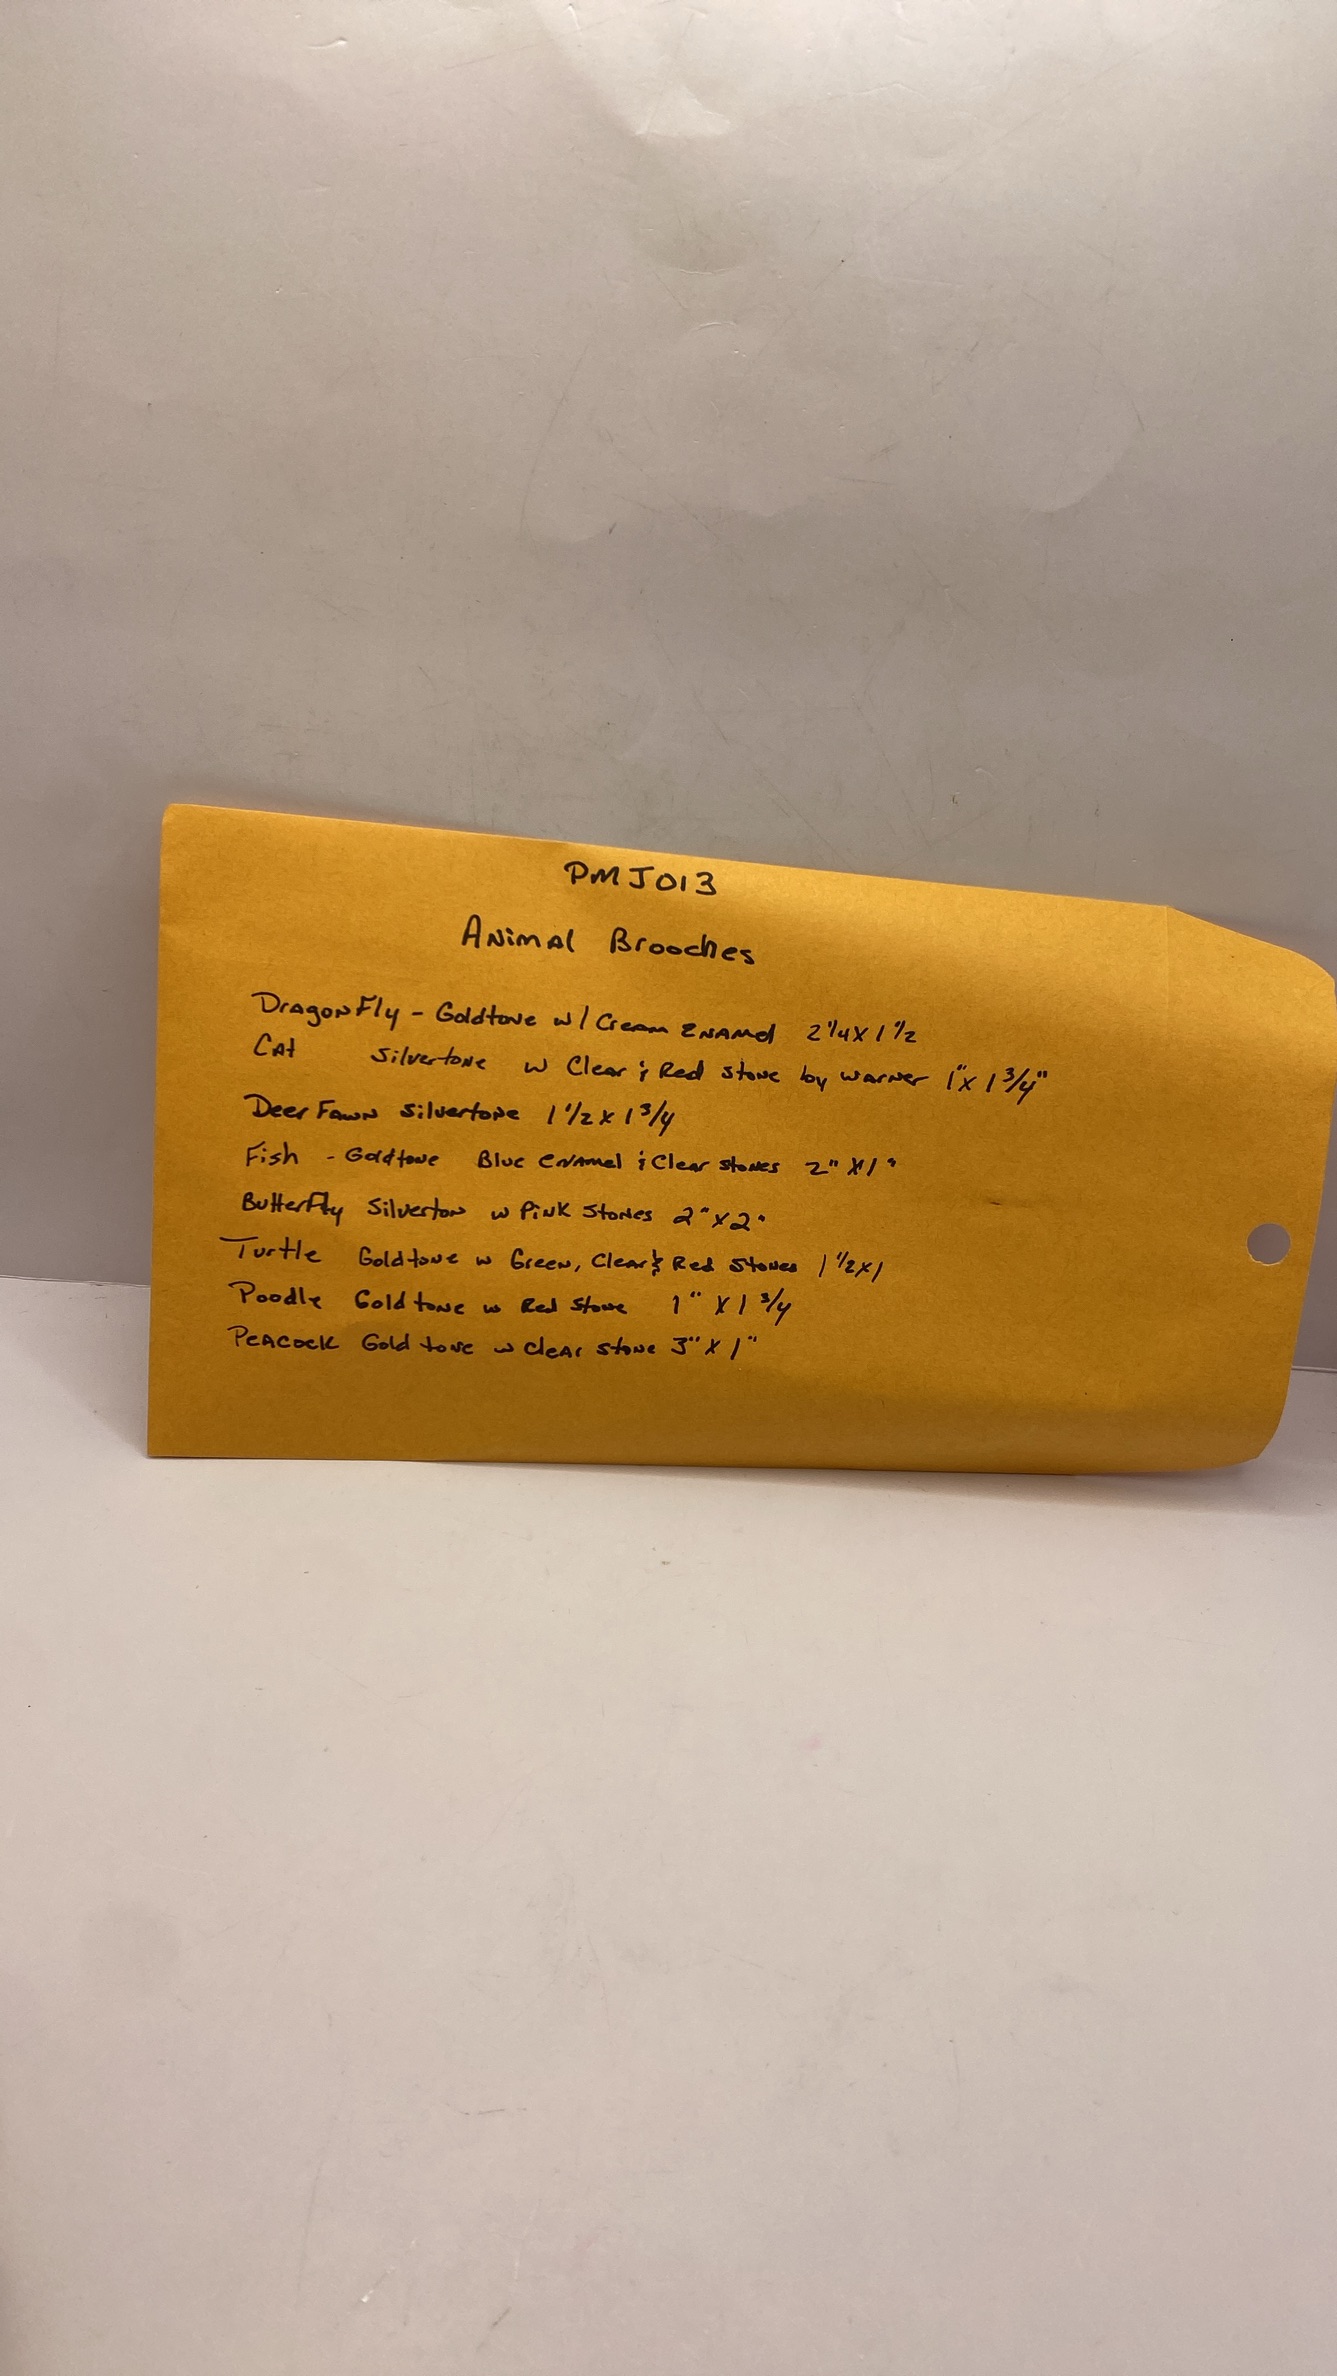 PMJ013
Animal Brooches
DragonFly - Goldtone w/ Cream Enamel 2 1/4 X 1 1/2
Cat silvertone w Clear & Red stone by Warner 1" X 1 3/4"
Deer Fawn silvertone 1 1/2 X 1 3/4
Fish - Goldtone Blue enamel & Clear stones 2" X 1"
ButterFly Silverton w Pink Stones 2" X 2"
Turtle Goldtone w Green, Clear & Red Stones 1 1/2 X 1
Poodle Goldtone w Red Stone 1" X 1 3/4
Peacock Gold tone w Clear stone 3" X 1"